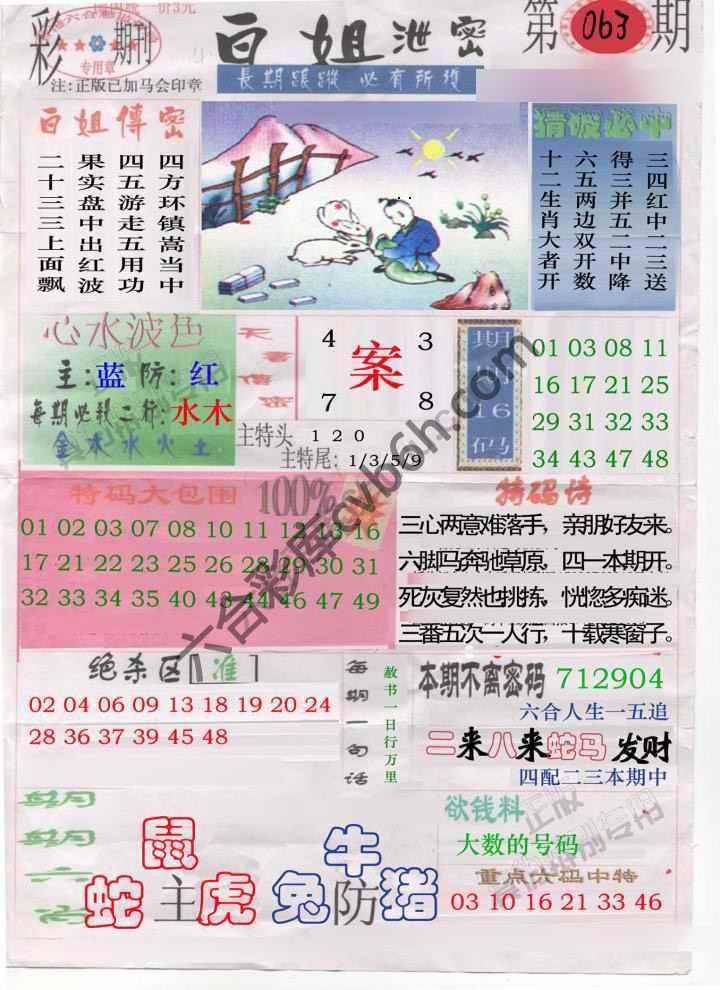 价3元
彩 期刊
专用章
注:正版已加马会印章
白姐泄密
長期跟蹤 必有所獲
第 063 期
白姐傳密
四方环镇嵩当中
四五游走五用功
果实盘中出红波
二十三三上面飘
猜波必中
三四红中二三送
得三并五二中降
六五两边双开数
十二生肖大者开
心水波色
主:蓝 防:红
每期必转二行:水木
金木水火土
4 3
案
7 8
主特头 1 2 0
主特尾: 1/3/5/9
16码
01 03 08 11
16 17 21 25
29 31 32 33
34 43 47 48
特码大包围 100%
01 02 03 07 08 10 11 12 13 16
17 21 22 23 25 26 28 29 30 31
32 33 34 35 40 43 44 46 47 49
特码诗
三心两意难落手，亲朋好友来。
六脚马奔地草原，四一本期开。
死灰复然也挑拣，恍惚多痴迷。
三番五次一人行，十载寒窗子。
绝杀区[准]
02 04 06 09 13 18 19 20 24
28 36 37 39 45 48
每期一句话
赦书一日行万里
本期不离密码 712904
六合人生一五追
二来八来蛇马 发财
四配二三本期中
鼠
蛇 主 虎
牛
兔 防 猪
欲钱料
大数的号码
重点六码中特
03 10 16 21 33 46
六合彩库cvb6h.com